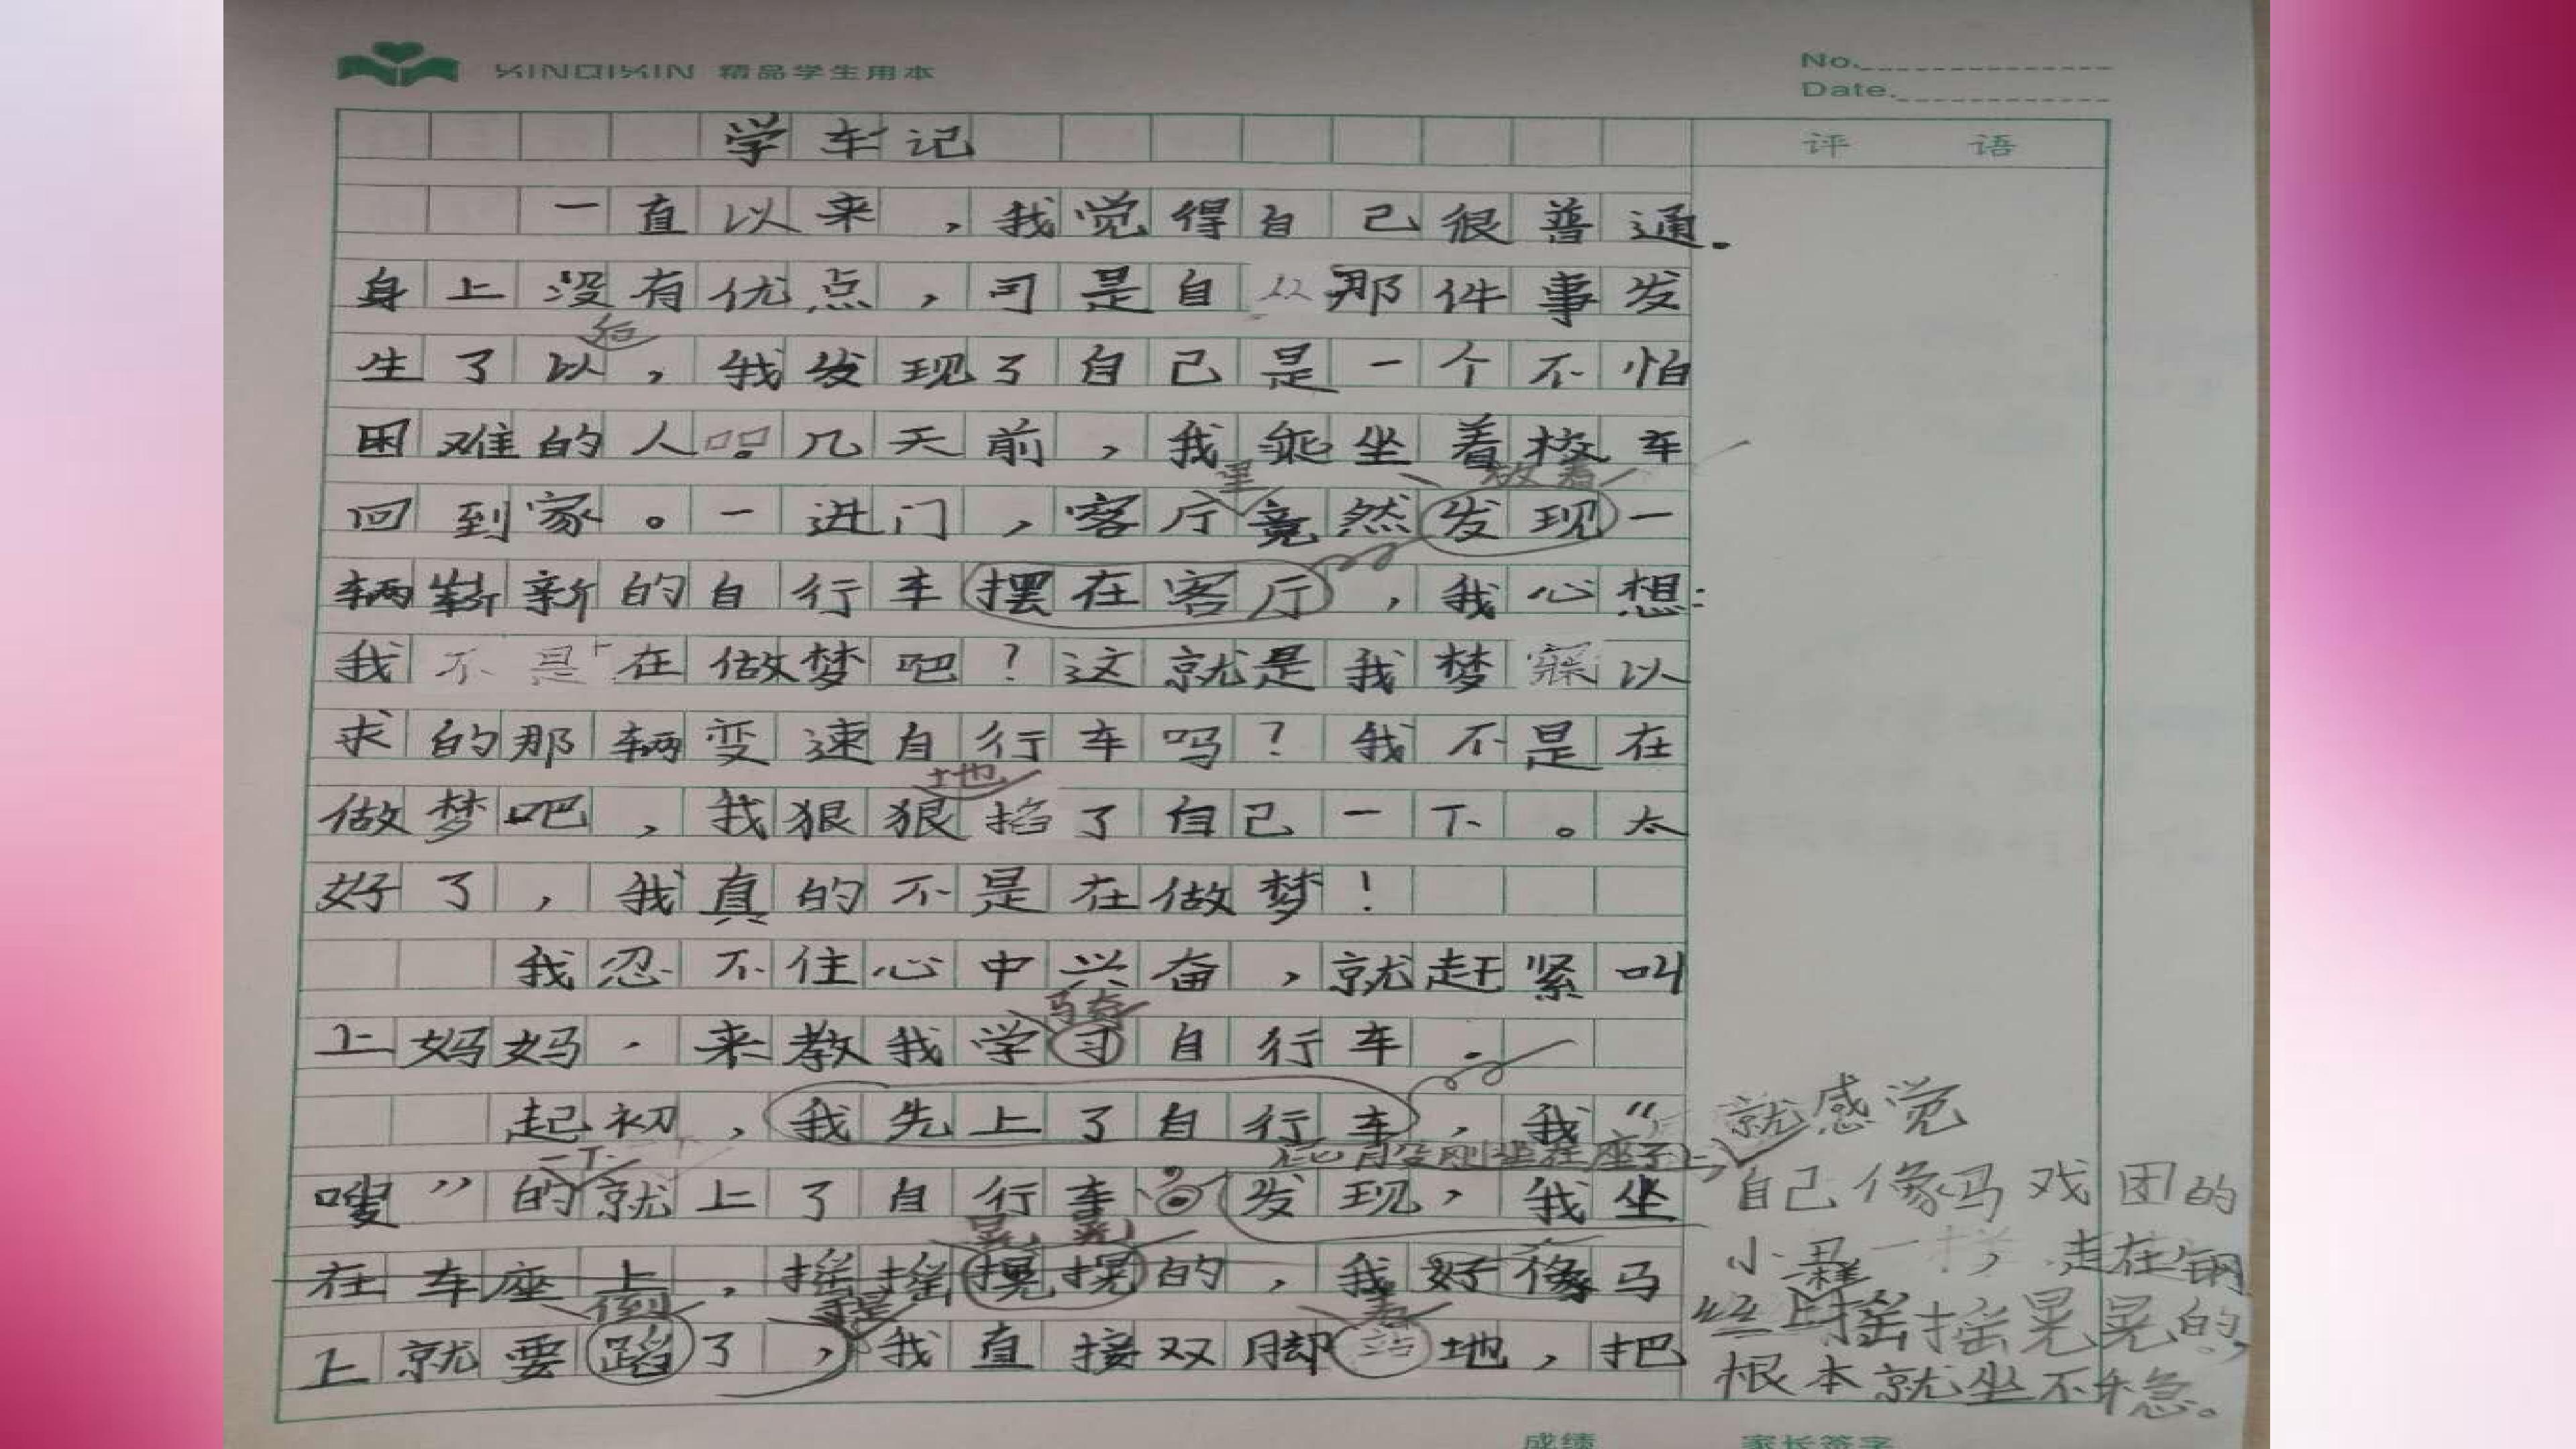 XINQIXIN 精品学生用本
No.
Date.
学车记
评 语
一直以来，我觉得自己很普通。
身上没有优点，可是自从那件事发
后
生了以，我发现了自己是一个不怕
困难的人。几天前，我乘坐着校车
里 放着
回到家。一进门，客厅竟然发现一
辆崭新的自行车摆在客厅，我心想：
我不是在做梦吧？这就是我梦寐以
求的那辆变速自行车吗？我不是在
地
做梦吧，我狠狠掐了自己一下。太
好了，我真的不是在做梦！
我忍不住心中兴奋，就赶紧叫
骑
上妈妈，来教我学习自行车。
起初，我先上了自行车，我“
一下
嗖”的就上了自行车。发现，我坐
晃晃
在车座上，摇摇摆摆的，我好像马
倒
上就要蹈了，我直接双脚站地，把
着
屁股刚坐在座子上，就感觉
自己像马戏团的
小
走在钢
丝上摇摇晃晃的，
根本就坐不稳。
成绩
家长签字